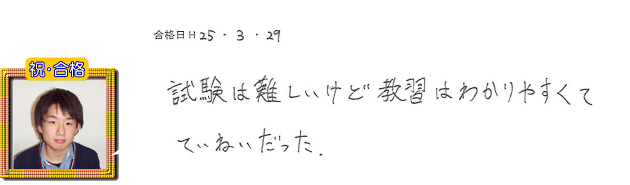 合格日 H 25・3・29
祝・合格
試験は難しいけど教習はわかりやすくて
ていねいだった.